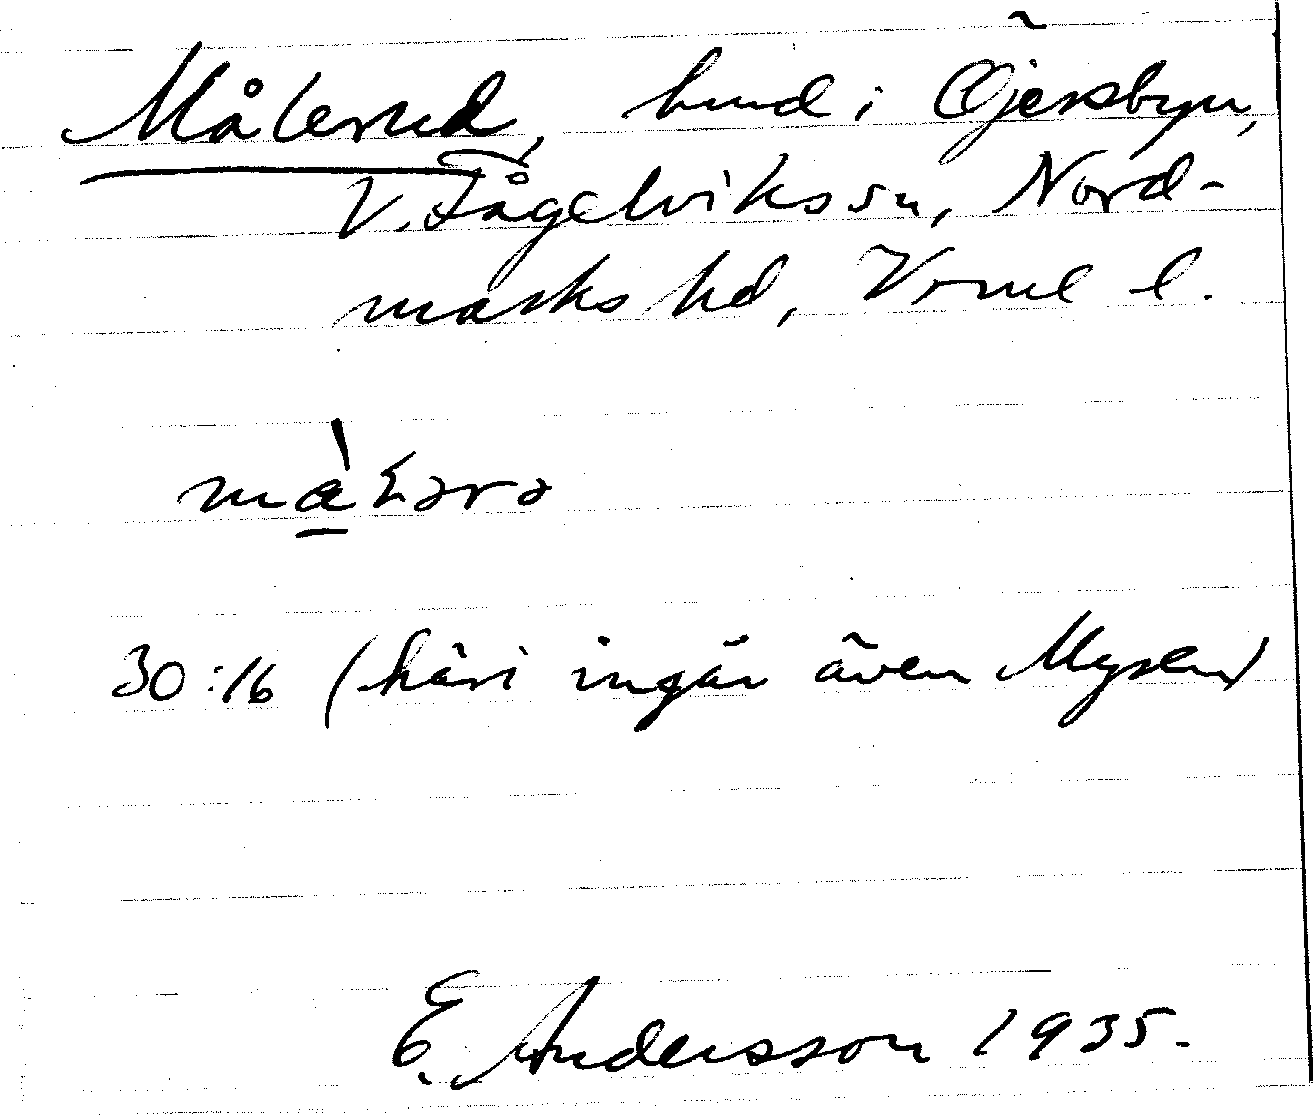 Målerud, hmd i Öjersbyn,
V. Fågelvikssn, Nord-
marks hd, Vrml l.
30:16 (häri ingår även Mysen)
E. Andersson 1935.